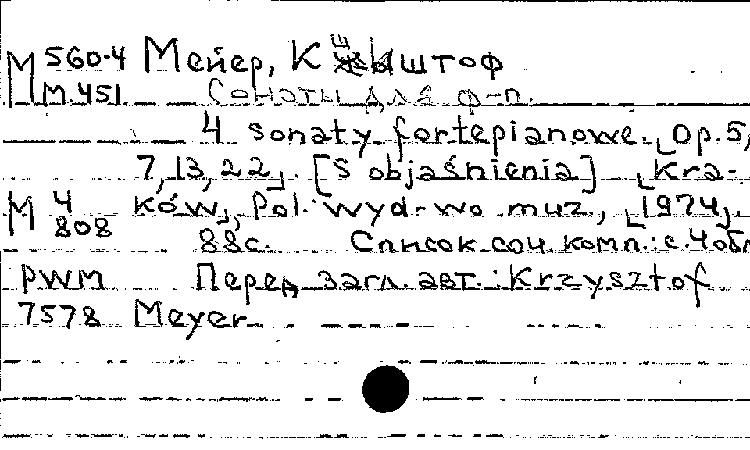 М 560-4 Мейер, К штоф
М.451 Сонаты для ф-п.
4 sonaty fortepianowe. Op.5,
7,13,22. [S objaśnienia] Kra-
М 4 ków, Pol. wyd-wo muz, 1974.
808 88с. Список соч. комп.: с. 4 обл
PWM Перед загл. авт.: Krzysztof
7578 Meyer